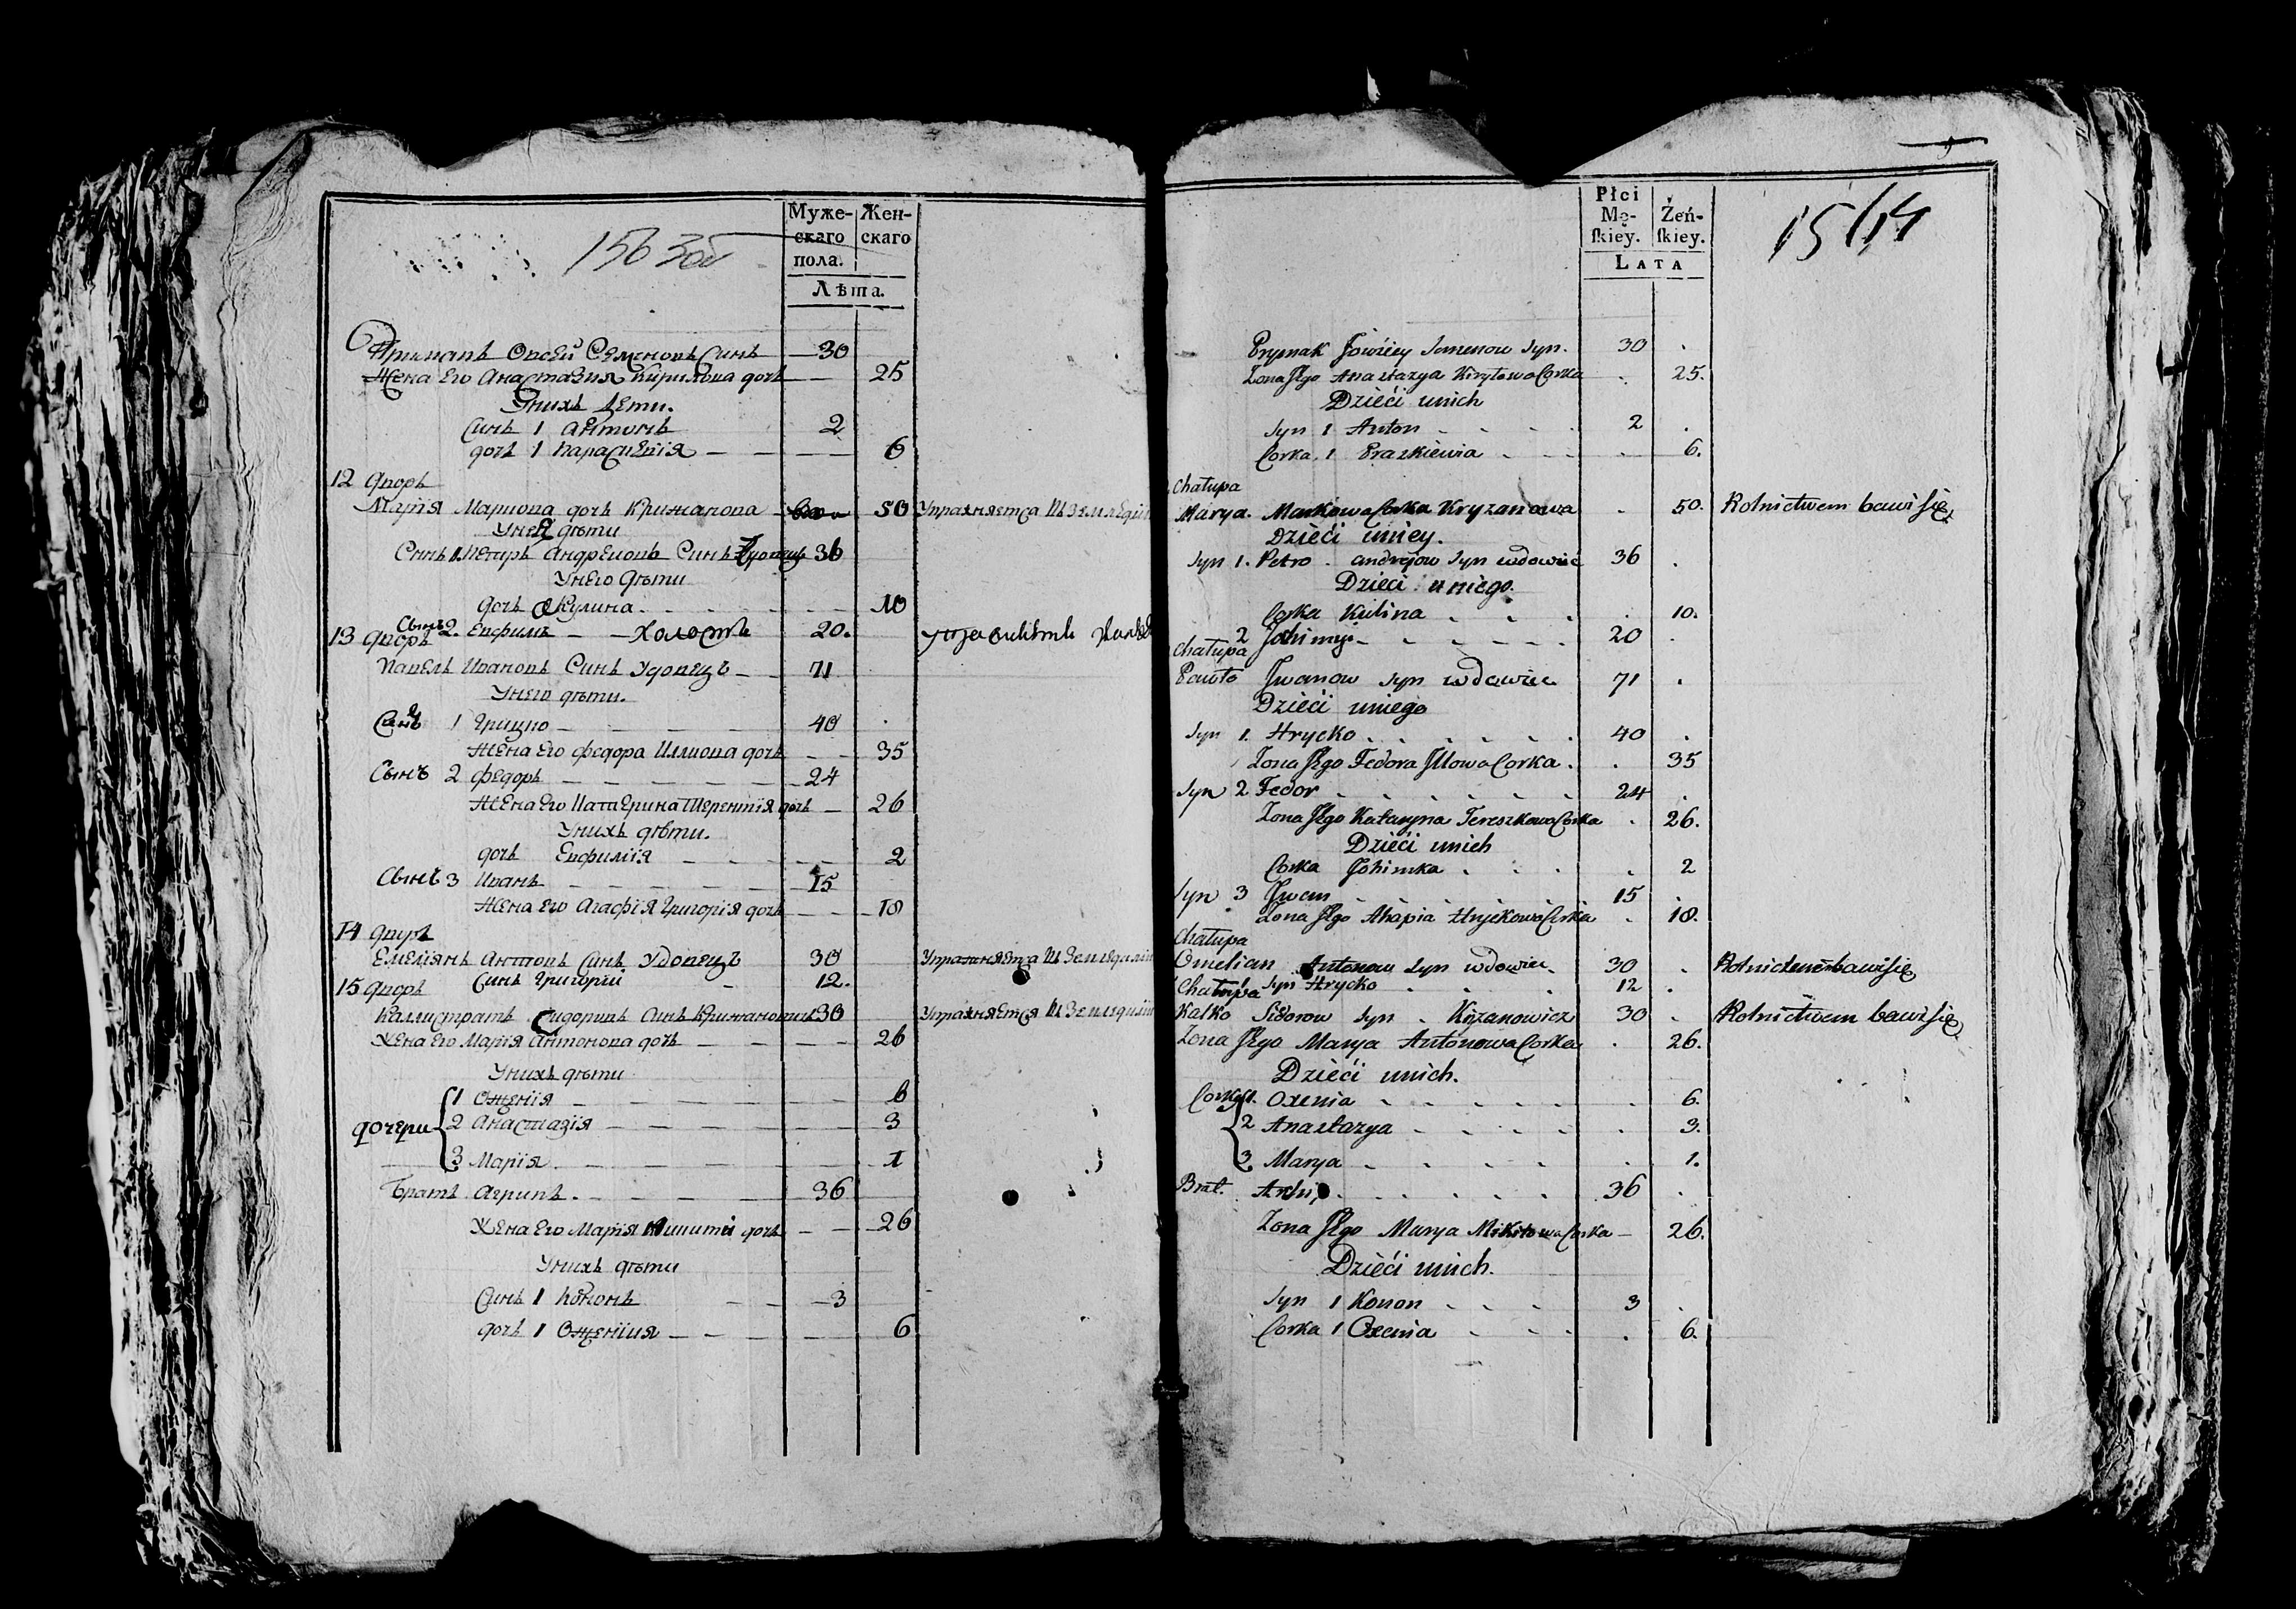 156 Зоб
Муже-
скаго
пола.
Жен-
скаго
Лѣта.
Примакъ Овсѣй Семеновъ Синъ 30
Жена Его Анастазия Кирилова дочь 25
Унихъ Дети.
Синъ 1 Антонъ 2
дочь 1 Параскевия 6
12 дворъ
Марїя Маркова дочь Крижанова 50 Упражняется въ земледѣлїи
Унея дѣти
Синъ 1 Петръ Андреювъ Синъ Удовецъ 36
Унего дѣти
дочь Акулина 10
Сынъ 2. Евфимъ Холостъ 20.
13 дворъ
Павелъ Ивановъ Синъ Удовецъ 71
Унего дѣти.
Синъ 1 Грицко 40
Жена Его Федора Иллиова дочь 35
Сынъ 2 Федоръ 24
Жена Его Катерина Терентїя дочь 26
Унихъ дѣти.
дочь Евфимїя 2
Сынъ 3 Иванъ 15
Жена Его Агафїя Григорїя дочь 18
14 дворъ
Емелїянъ Антовъ Синъ Удовецъ 30 Упражняется въ Земледилїи
Синъ Григорїй 12.
15 дворъ
Каллистратъ Сидоривъ Синъ Крижановичъ 30 Упражняется въ Земледилїи
Жена Его Марїя Антонова дочь 26
Унихъ дѣти
дочери
1 Оженїя 6
2 Анастазїя 3
3 Марїя 1
Братъ Агрипъ 36
Жена Его Марїя Никити дочь 26
Унихъ дѣти
Синъ 1 Кононъ 3
дочь 1 Оженїия 6
Płci
Mę-
skiey.
Żeń-
skiey.
LATA
15/14
Prymak Jowśiey Semenow Syn. 30
Zona Jego Anastazya Kiryłowa Corka 25.
Dzieći unich
Syn 1 Anton 2
Corka 1 Praskiewia 6.
Chałupa
Marya. Markowa Corka Kryzanowa 50. Rolnictwem bawi się
Dzieći uniey.
Syn 1. Petro andrejow Syn wdowiec 36
Dzieci uniego.
Corka Kulina 10.
2 Johimy 20
Chałupa
Pawło Jwanow Syn wdowiec 71
Dzieći uniego
Syn 1. Hrycko 40
Zona Jego Fedora Jllowa Corka 35
Syn 2 Fedor 24
Zona Jego Kataryna Tereszkowa Corka 26.
Dzieći unich
Corka Johimka 2
Syn 3 Jwan 15
Zona Jego Ahapia Hryckowa Corka 18.
Chałupa
Omelian Antonow Syn wdowiec 30 Rolnictwem bawi się
Syn Hrycko 12
Chałupa
Kalko Sidorow Syn Kryzanowicz 30 Rolnictwem bawi się
Zona Jego Marya Antonowa Corka 26.
Dzieći unich.
Corky 1. Oxenia 6.
2 Anastazya 3.
3. Marya 1.
Brat. Arhip 36
Zona Jego Marya Mikitowa Corka 26.
Dzieći unich.
Syn 1 Konon 3
Corka 1 Oxenia 6.